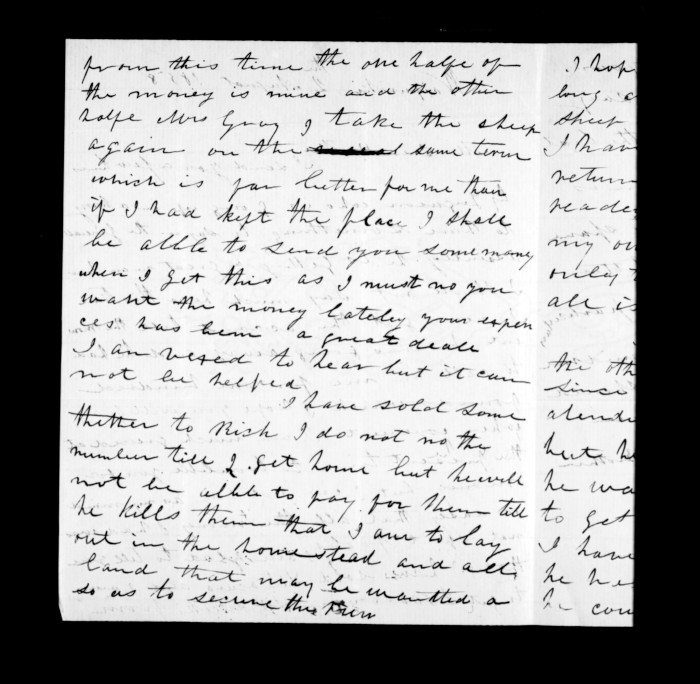 from this time the one halfe of
the money is mine and the other
halfe Mrs Gray I take the sheep
again on the same term
which is far better for me than
if I had kept the place I shall
be allble to send you some money
when I get this as I must no you
want the money lateley your expen
ces has bein a great deale
I am vexed to hear but it can
not be helped
I have sold some
thether to Rich I do not no the
number till I get home but he will
not be allble to pay for them till
he kills them that I am to lay
out in the home stead and all
land that may be wantted a
so as to secure the Run
I hop
long
sheet
I hav
return
reade
my ow
only
all is
the oth
since
atende
but he
he wa
to get
I have
he ha
he cou